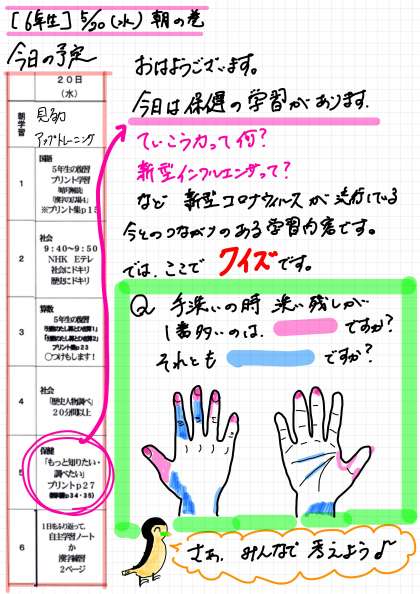 [6年生] 5/20(水) 朝の巻
今日の予定
20日
(水)
朝学習
見る力
アップトレーニング
1
国語
5年生の復習
プリント学習
「漢字の広場4」
※プリント集p15
2
社会
9:40~9:50
NHK Eテレ
社会にドキリ
歴史にドキリ
3
算数
5年生の復習
プリントp23
〇つけもします!
4
社会
「歴史人物調べ」
20分間以上
5
保健
「もっと知りたい・
調べたい」
プリントp27
6
1日をふり返って、
自主学習ノート
か
漢字練習
2ページ
おはようございます。
今日は保健の学習があります。
ていこう力って何?
新型インフルエンザって?
など 新型コロナウィルスが流行している
今とのつながりのある学習内容です。
では、ここで クイズです。
Q 手洗いの時 洗い残しが
1番多いのは、 ですか?
それとも ですか?
さぁ、みんなで 考えよう♪